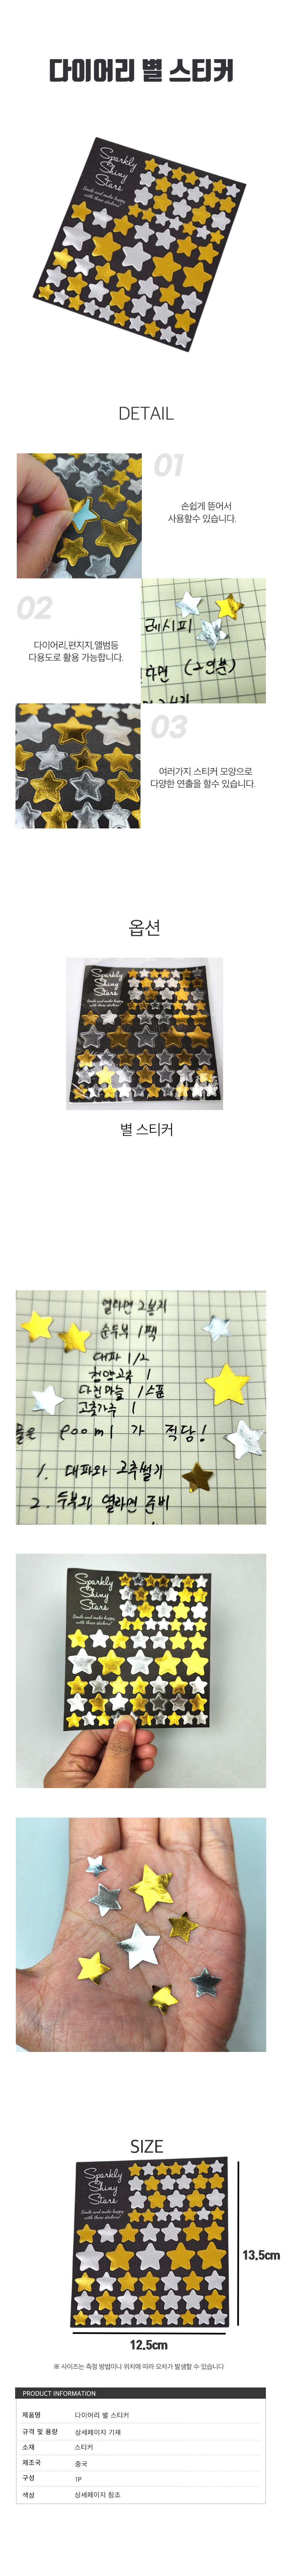 다이어리 별 스티커
Sparkly
Shiny
Stars
Smile and make happy
with these stickers!
DETAIL
01
손쉽게 뜯어서
사용할수 있습니다.
02
다이어리,편지지,앨범등
다용도로 활용 가능합니다.
레시피
라면 (2인분)
03
여러가지 스티커 모양으로
다양한 연출을 할수 있습니다.
옵션
Sparkly
Shiny
Stars
Smile and make happy
with these stickers!
별 스티커
열라면 2봉지
순두부 1팩
대파 1/2
청양고추 1
다진마늘 1스푼
고춧가루 1
물은 800ml 가 적당!
1. 대파와 고추썰기
2. 두부와 열라면 준비
Sparkly
Shiny
Stars
Smile and make happy
with these stickers!
SIZE
Sparkly
Shiny
Stars
Smile and make happy
with these stickers!
13.5cm
12.5cm
※ 사이즈는 측정 방법이나 위치에 따라 오차가 발생할 수 있습니다
PRODUCT INFORMATION
제품명 다이어리 별 스티커
규격 및 용량 상세페이지 기재
소재 스티커
제조국 중국
구성 1P
색상 상세페이지 참조